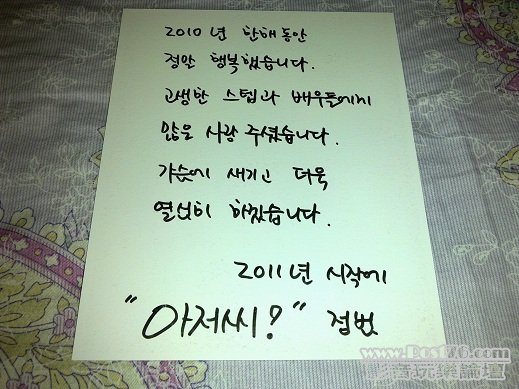 2010년 한해동안
정말 행복했습니다.
고생한 스텝과 배우들에게
많은 사랑 주셨습니다.
가슴에 새기고 더욱
열심히 하겠습니다.
2011년 시작에
"아저씨?" 정범
www.Post76.com
影音玩樂論壇